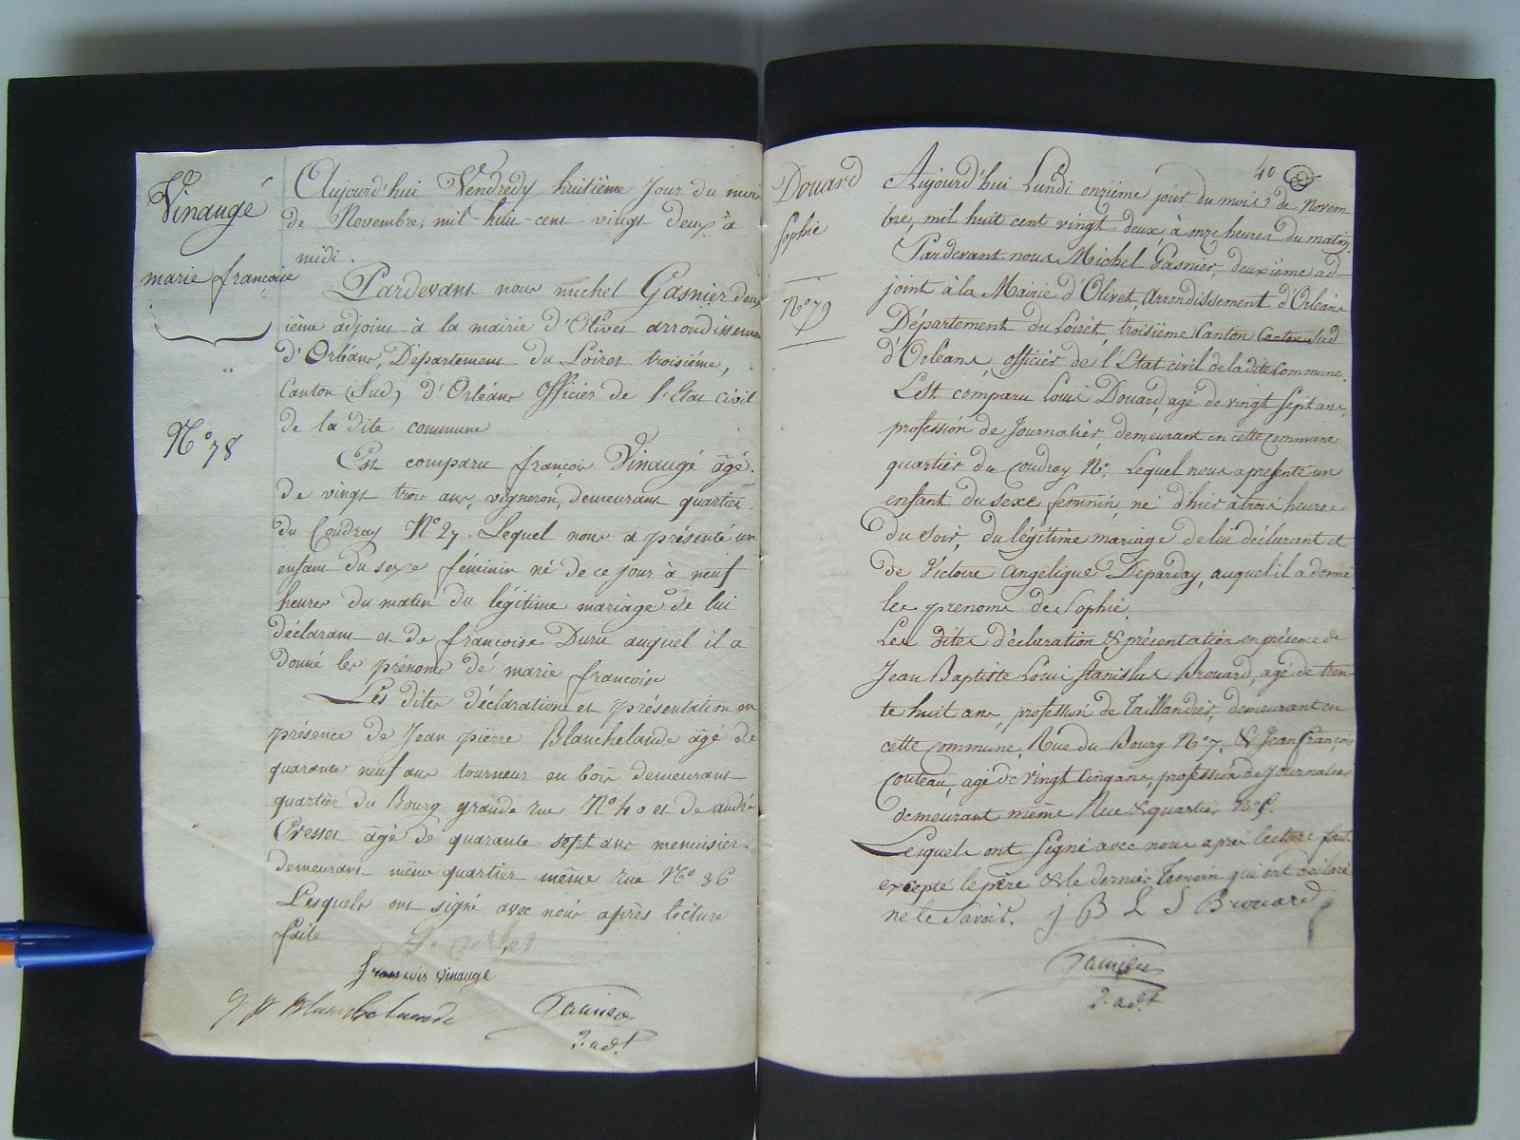 Vinaugé
marie françoise
N° 78
Aujourd'hui Vendredy huitième jour du mois
de Novembre, mil huit-cent vingt deux à
midi.
Pardevant nous michel Gasnier deux
ième adjoint à la mairie d'Olivet arrondissement
d'Orléans, Département du Loiret troisième,
Canton (Sud) d'Orléans Officier de l'Etat civil
de la dite commune
Est comparu françois Vinaugé âgé
de vingt trois ans, vigneron, demeurant quartier
du Coudray N° 27. Lequel nous a présenté un
enfant du sexe féminin né de ce jour à neuf
heures du matin du légitime mariage de lui
déclarant et de françoise Durie auquel il a
donné les prénoms de marie françoise
Les dites déclaration et présentation en
présence de Jean pierre Blanchelande âgé de
quarante neuf ans tourneur en bois demeurant
quartier du Bourg grande rue N° 40 et de andré
Cresset âgé de quarante sept ans menuisier
demeurant même quartier même rue N° 36
Lesquels ont signé avec nous après lecture
faite
françois vinauge
J P Blanchelande
Gasnier
2. adt
40
Douard
Sophie
N° 79
Aujourd'hui Lundi onzième jour du mois de Novem
bre, mil huit cent vingt deux, à onze heures du matin.
Pardevant nous Michel Gasnier, deuxième ad
joint à la Mairie d'Olivet, Arrondissement d'Orléans
Département du Loiret, troisième Canton Canton Sud
d'Orléans, officier de l'Etat civil de la dite Commune.
Est comparu Louis Douard, agé de vingt sept ans,
profession de Journalier, demeurant en cette commune
quartier du Coudray N°. Lequel nous a présenté un
enfant du sexe feminin, né d'hier à trois heures
du soir, du légitime mariage de lui déclarant et
de Victoire Angelique Deparday, auquel il a donné
les prenoms de Sophie
Les dites déclaration & présentation en présence de
Jean Baptiste Louis Stanislas Brouard, agé de tren
te huit ans, profession de Taillandier, demeurant en
cette Commune, Rue du Bourg N° 7, & Jean françois
Couteau, agé de vingt Cinq ans, profession de Journalier
demeurant même Rue & quartier
Lesquels ont signé avec nous apres lecture fait
excepté le père & le dernier Temoin qui ont déclaré
ne le savoir. j B L S Brouard
Gasnier
2. adt